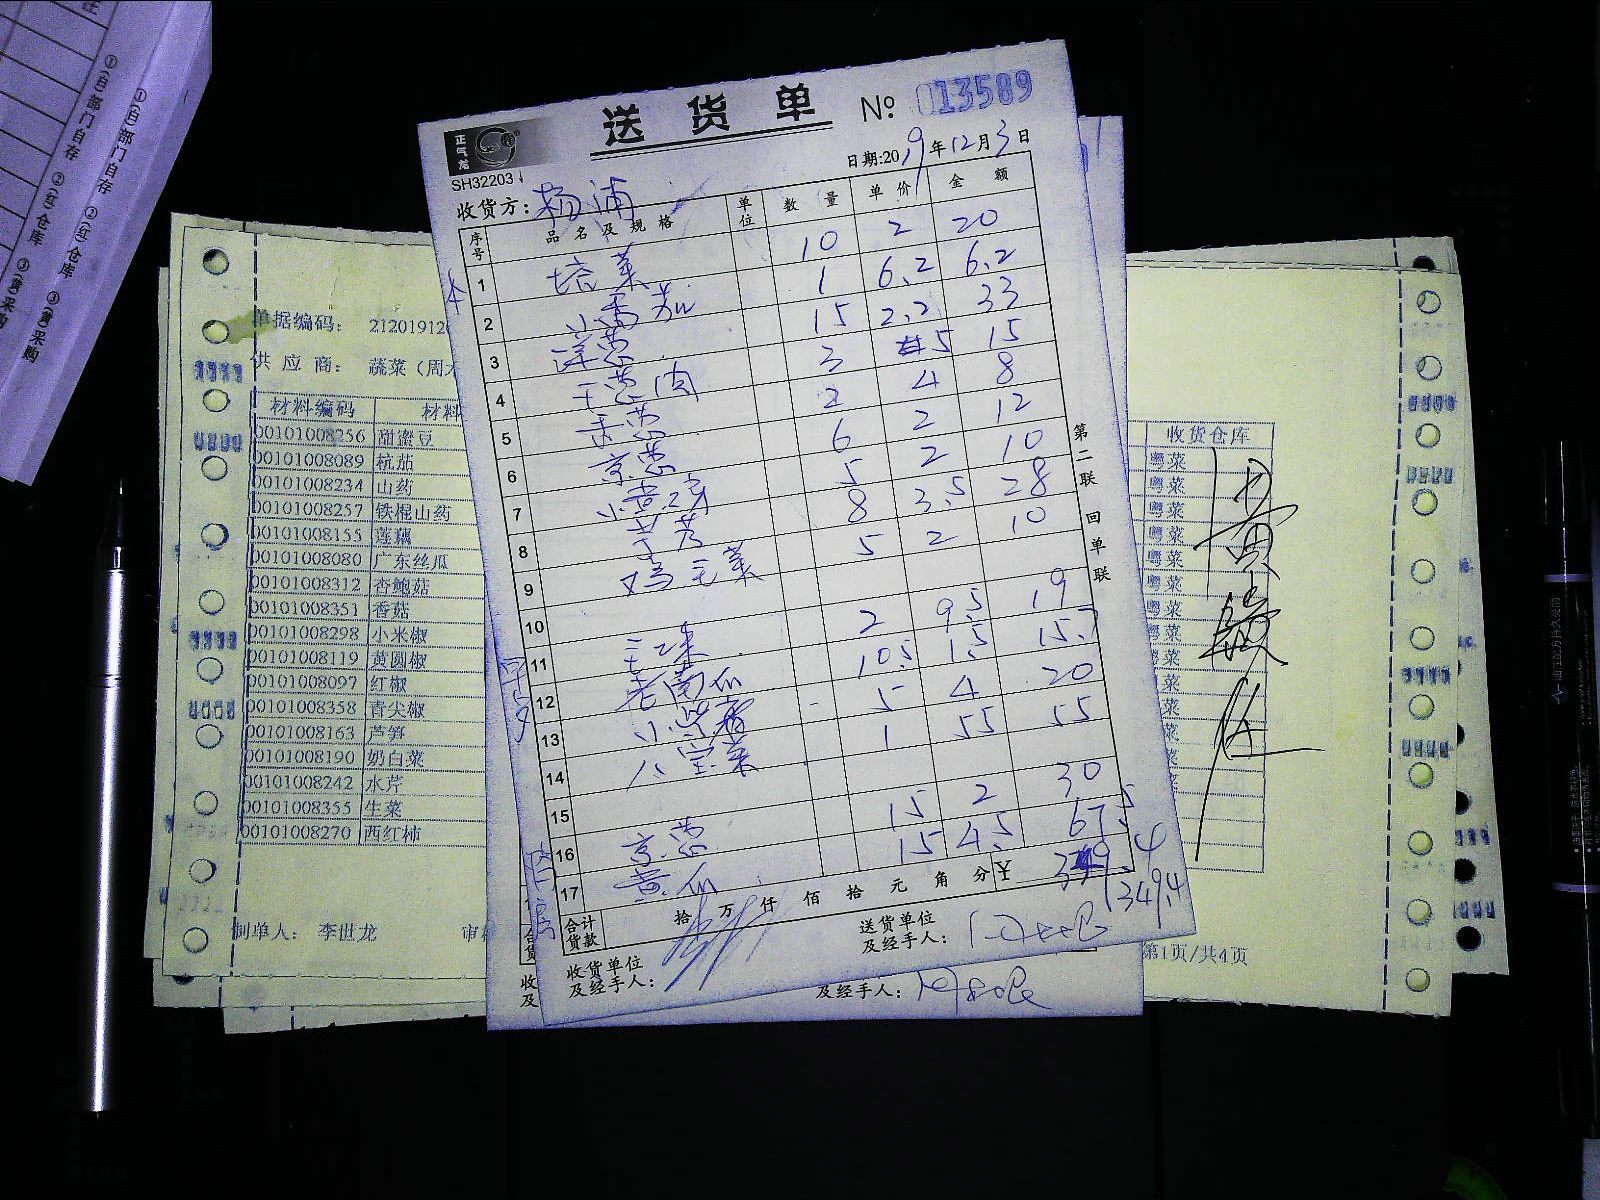 送货单 № 013589
正气龙
SH32203
日期:2019年12月3日
收货方: 杨浦
序号 品名及规格 单位 数量 单价 金额
1 培菜 10 2 20
2 小番茄 1 6.2 6.2
3 洋葱 15 2.2 33
4 干葱肉 3 5 15
5 香葱 2 4 8
6 京葱 6 2 12
7 小黄瓜 5 2 10
8 芋艿 8 3.5 28
9 鸡毛菜 5 2 10
10
11 玉米 2 9.5 19
12 老南瓜 10.5 1.5 15.7
13 小茴香 5 4 20
14 八宝菜 1 55 55
15
16 京葱 15 2 30
17 黄瓜 15 4.5 67.5
合计货款 拾 万 仟 佰 拾 元 角 分 ¥ 349.4
349.4
收货单位及经手人:
送货单位及经手人:
第二联 回单联
及经手人:
单据编码: 212019120
供应商: 蔬菜(周
材料编码 材料
00101008256 甜蜜豆
00101008089 杭茄
00101008234 山药
00101008257 铁棍山药
00101008155 莲藕
00101008080 广东丝瓜
00101008312 杏鲍菇
00101008351 香菇
00101008298 小米椒
00101008119 黄圆椒
00101008097 红椒
00101008358 青尖椒
00101008163 芦笋
00101008190 奶白菜
00101008242 水芹
00101008355 生菜
00101008270 西红柿
制单人: 李世龙
收货仓库
粤菜
粤菜
粤菜
粤菜
粤菜
粤菜
粤菜
粤菜
第1页/共4页
①(白)部门自存 ②(红)仓库 ③(黄)采购
①(白)部门自存 ②(红)仓库 ③(黄)采购